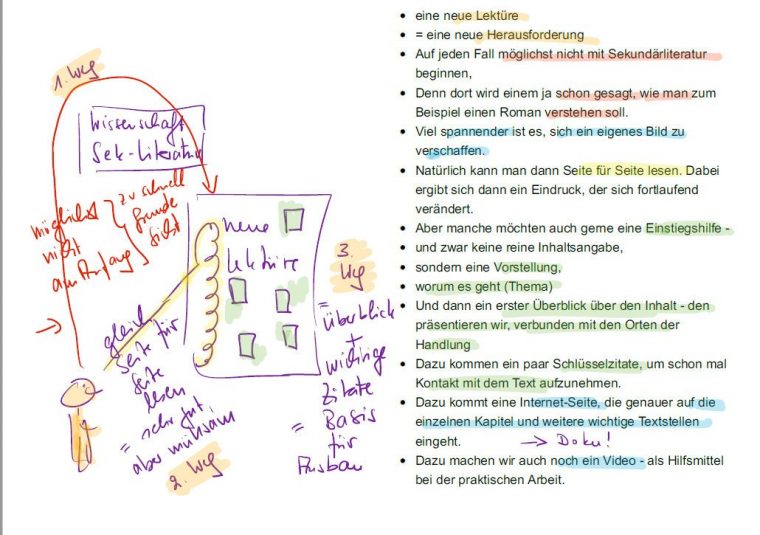 1. Weg
Wissenschaft
Sek-Literatur
möglichst
nicht
am Anfang
zu schnell
fremde
Sicht
neue
Lektüre
gleich
Seite für
Seite
lesen
= sehr gut,
aber mühsam
2. Weg
3.
Weg
= Überblick
+
wichtige
Zitate
= Basis
für
Ausbau
eine neue Lektüre
= eine neue Herausforderung
Auf jeden Fall möglichst nicht mit Sekundärliteratur
beginnen,
Denn dort wird einem ja schon gesagt, wie man zum
Beispiel einen Roman verstehen soll.
Viel spannender ist es, sich ein eigenes Bild zu
verschaffen.
Natürlich kann man dann Seite für Seite lesen. Dabei
ergibt sich dann ein Eindruck, der sich fortlaufend
verändert.
Aber manche möchten auch gerne eine Einstiegshilfe -
und zwar keine reine Inhaltsangabe,
sondern eine Vorstellung,
worum es geht (Thema)
Und dann ein erster Überblick über den Inhalt - den
präsentieren wir, verbunden mit den Orten der
Handlung
Dazu kommen ein paar Schlüsselzitate, um schon mal
Kontakt mit dem Text aufzunehmen.
Dazu kommt eine Internet-Seite, die genauer auf die
einzelnen Kapitel und weitere wichtige Textstellen
eingeht. → Doku!
Dazu machen wir auch noch ein Video - als Hilfsmittel
bei der praktischen Arbeit.